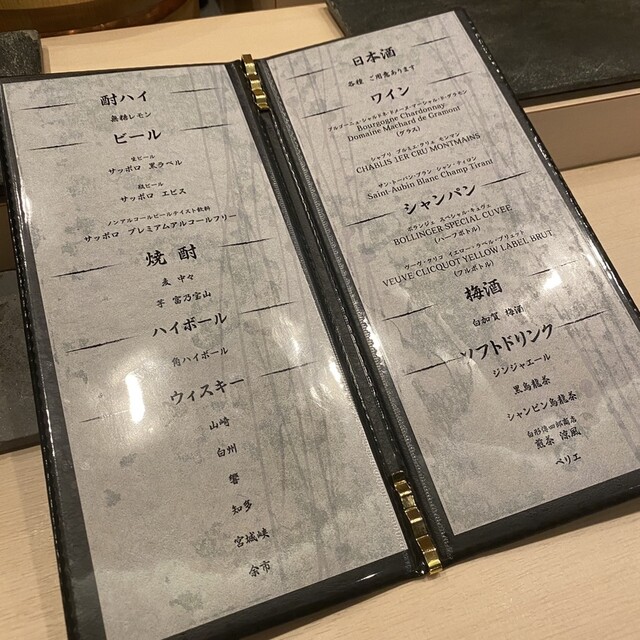 酎ハイ
無糖レモン
ビール
生ビール
サッポロ 黒ラベル
瓶ビール
サッポロ エビス
ノンアルコールビールテイスト飲料
サッポロ プレミアムアルコールフリー
焼酎
麦 中々
芋 富乃宝山
ハイボール
角ハイボール
ウィスキー
山崎
白州
響
知多
宮城峡
余市
日本酒
各種 ご用意あります
ワイン
ブルゴーニュ・シャルドネ・ドメーヌ・マーシャル・ド・グラモン
Bourgogne Chardonnay.
Domaine Machard de Gramont
(グラス)
シャブリ プルミエ・クリュ モンマン
CHABLIS 1ER CRU MONTMAINS
サン・トーバン・ブラン シャン・ティロン
Saint-Aubin Blanc Champ Tirant
シャンパン
ボランジェ スペシャル・キュヴェ
BOLLINGER SPECIAL CUVEE
(ハーフボトル)
ヴーヴ・クリコ イエロー・ラベル・ブリュット
VEUVE CLICQUOT YELLOW LABEL BRUT
(フルボトル)
梅酒
白加賀 梅酒
ソフトドリンク
ジンジャエール
黒烏龍茶
ジャンピン烏龍茶
煎茶 涼風
ペリエ